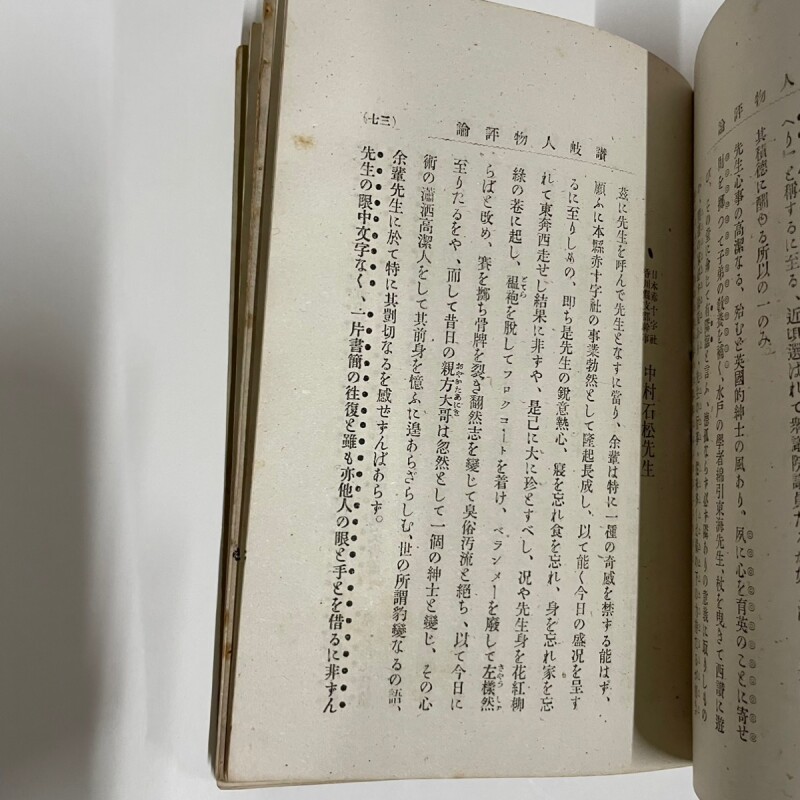 へり』と稱するに至る、近頃選ばれて衆議院議員
其積德に酬ゆる所以の一のみ
先生心事の高潔なる、殆むど英國的紳士の風あり、夙に心を育英のことに寄せ
水戸の學者綿引東海先生、杖を曳きて西讃に遊
人物評論
讃岐人物評論
(七三)
日本赤十字社
中村石松先生
茲に先生を呼んで先生となすに當り、余輩は特に一種の奇感を禁する能はず、
顧ふに本縣赤十字社の事業勃然として隆起長成し、以て能く今日の盛况を呈す
るに至りしもの、即ち是先生の銳意熱心、寢を忘れ食を忘れ、身を忘れ家を忘
れて東奔西走せし結果に非すや、是已に大に珍とすべし、况や先生身を花紅柳
綠の巷に起し、褞袍を脫してフロクコートを着け、ベランメーを廢して左樣然
らばと改め、賽を擲ち骨牌を裂き翻然志を變じて臭俗汚流と絕ち、以て今日に
至りたるをや、而して昔日の親方大哥は忽然として一個の紳士と變じ、その心
術の瀟洒高潔人をして其前身を憶ふに遑あらざらしむ、世の所謂豹變なるの語、
余輩先生に於て特に其剴切なるを感せずんばあらず。
先生の眼中文字なく、一片書簡の往復と雖も亦他人の眼と手とを借るに非ずん